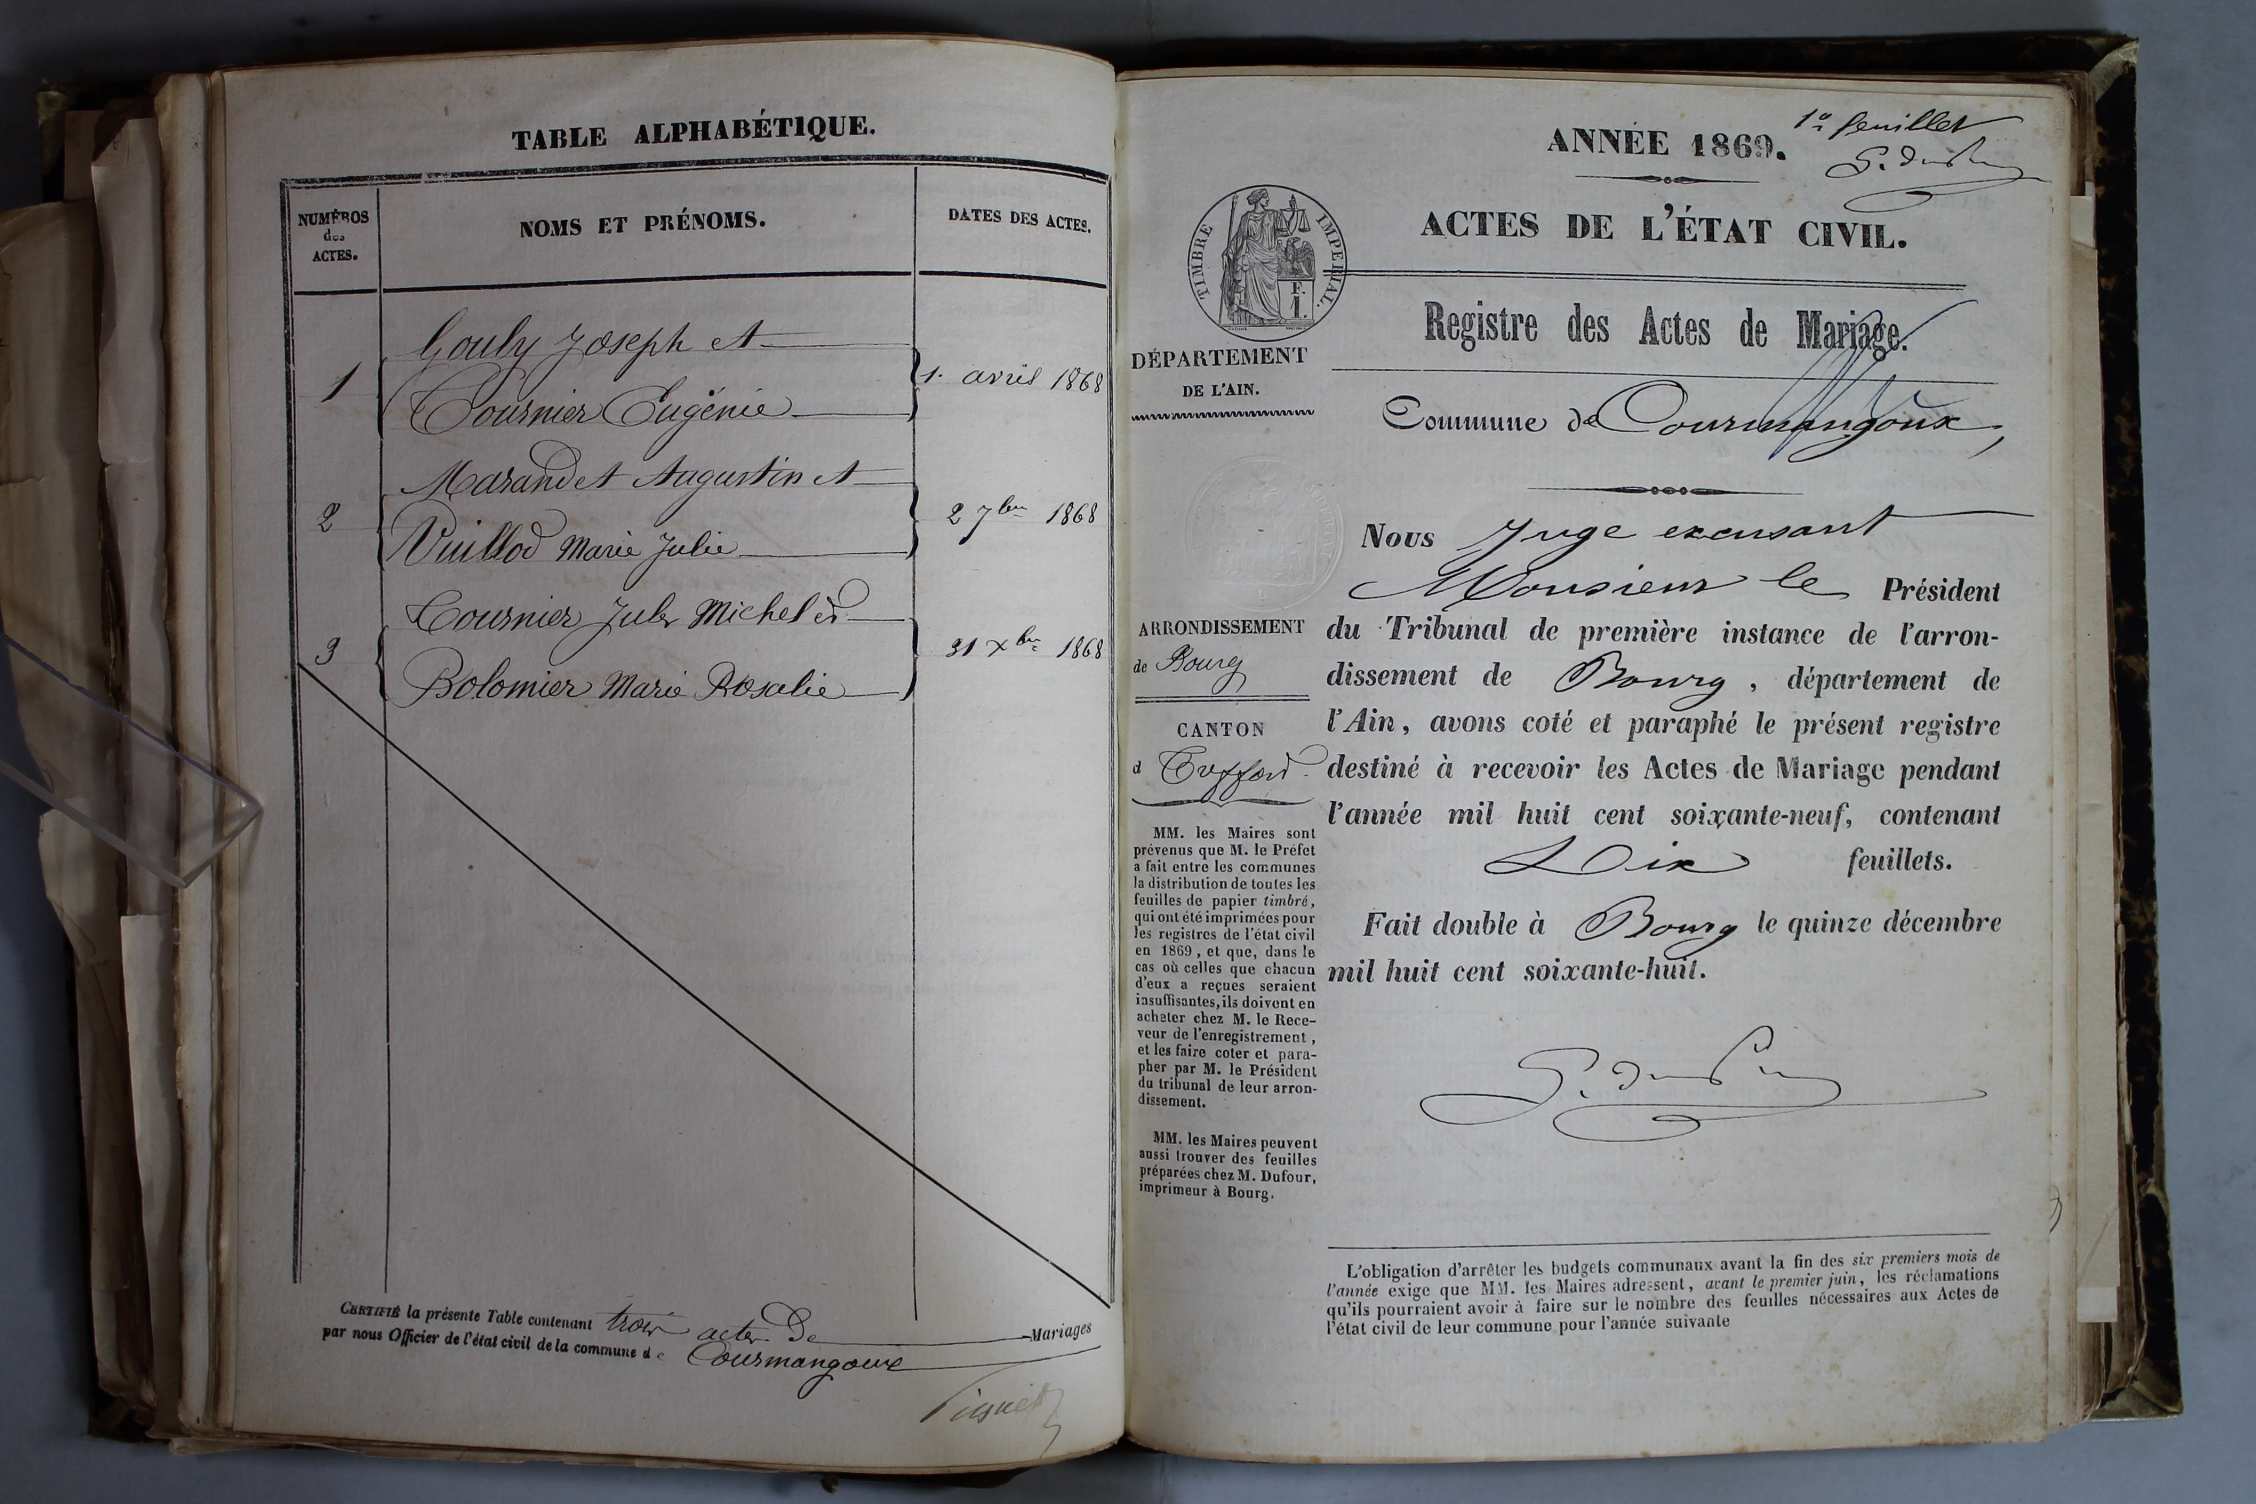 TABLE ALPHABÉTIQUE.
NUMÉROS
des
ACTES.
NOMS ET PRÉNOMS.
DATES DES ACTES.
Gouly Joseph et
1
1. avril 1868
Tournier Eugénie
Marandet Augustin et
2
2 7bre 1868
Vuillod Marie Julie
Tournier Jules Michel et
3
31 Xbre 1868
Bolomier Marie Rosalie
CERTIFIÉ la présente Table contenant trois actes de Mariages
par nous Officier de l'état civil de la commune de Courmangoux
1er feuillet
ANNÉE 1869.
ACTES DE L'ÉTAT CIVIL.
TIMBRE IMPERIAL.
F.
1.
Registre des Actes de Mariage.
DÉPARTEMENT
DE L'AIN.
Commune de Courmangoux,
Nous Juge excusant
Monsieur le Président
ARRONDISSEMENT
de Bourg
CANTON
d Treffort
du Tribunal de première instance de l'arron-
dissement de Bourg, département de
l'Ain, avons coté et paraphé le présent registre
destiné à recevoir les Actes de Mariage pendant
l'année mil huit cent soixante-neuf, contenant
Dix feuillets.
Fait double à Bourg le quinze décembre
mil huit cent soixante-huit.
MM. les Maires sont
prévenus que M. le Préfet
a fait entre les communes
la distribution de toutes les
feuilles de papier timbré,
qui ont été imprimées pour
les registres de l'état civil
en 1869, et que, dans le
cas où celles que chacun
d'eux a reçues seraient
insuffisantes, ils doivent en
acheter chez M. le Rece-
veur de l'enregistrement,
et les faire coter et para-
pher par M. le Président
du tribunal de leur arron-
dissement.
MM. les Maires peuvent
aussi trouver des feuilles
préparées chez M. Dufour,
imprimeur à Bourg.
L'obligation d'arrêter les budgets communaux avant la fin des six premiers mois de
l'année exige que MM. les Maires adressent, avant le premier juin, les réclamations
qu'ils pourraient avoir à faire sur le nombre des feuilles nécessaires aux Actes de
l'état civil de leur commune pour l'année suivante